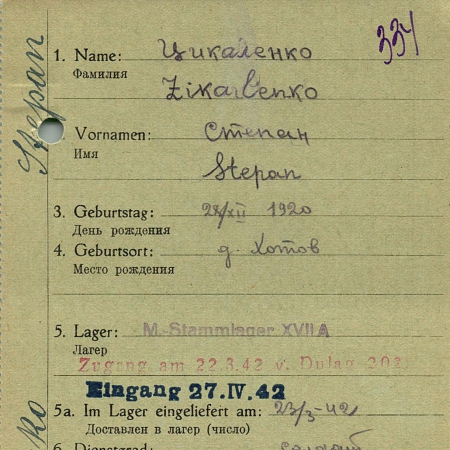 334
Stepan
1. Name: Цикаленко
Фамилия
Zikalenko
Vornamen: Степан
Имя
Stepan
3. Geburtstag: 28/XII 1920
День рождения
4. Geburtsort: д. Хотов
Место рождения
5. Lager: M.-Stammlager XVII A
Лагер
Zugang am 22.3.42 v. Dulag 202
Eingang 27. IV. 42
5a. Im Lager eingeliefert am: 23/3-42
Доставлен в лагер (число)
ko
6. Dienstgrad: солдат